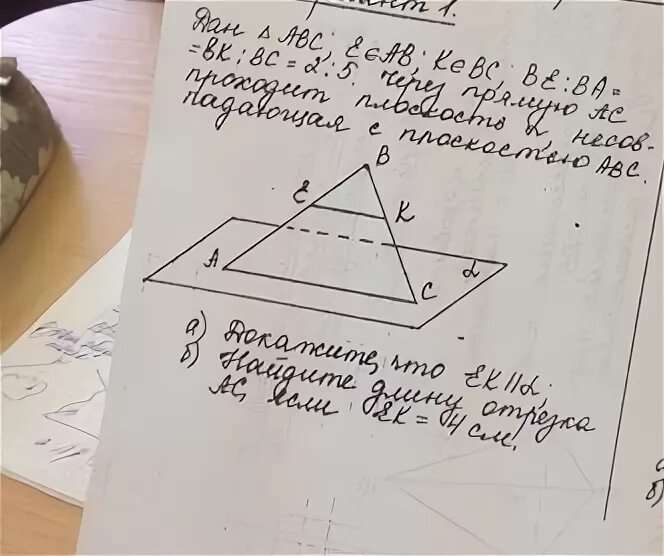 1.
Дан △ ABC; E∈AB; K∈BC; BE:BA=
=BK:BC=2:5. Через прямую AC
проходит плоскость α, несов-
падающая с плоскостью ABC.
B
E
K
A
α
C
а) Докажите, что EK∥α;
б) Найдите длину отрезка
AC, если EK= 4 см.
б)